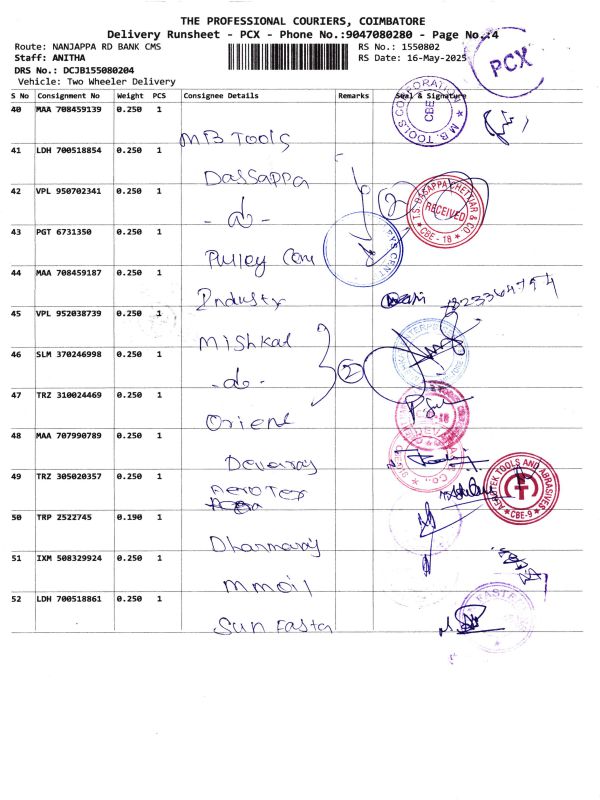 THE PROFESSIONAL COURIERS, COIMBATORE
Delivery Runsheet - PCX - Phone No.:9047080280 - Page No.:4
Route: NANJAPPA RD BANK CMS
RS No.: 1550802
Staff: ANITHA
RS Date: 16-May-2025
PCX
DRS No.: DCJB155080204
Vehicle: Two Wheeler Delivery
S No Consignment No Weight PCS Consignee Details Remarks Seal & Signature
40 MAA 708459139 0.250 1 MB Tools
M.B. TOOLS CORPORATION CBE
41 LDH 700518854 0.250 1 Dassappa
42 VPL 950702341 0.250 1 - do -
2
T.S. DASAPPA CHETTIAR & CO. RECEIVED CBE - 18
43 PGT 6731350 0.250 1 Pulley Cen
44 MAA 708459187 0.250 1 Industry
45 VPL 952038739 0.250 1 Mishkal
46 SLM 370246998 0.250 1 - do -
2
47 TRZ 310024469 0.250 1 Orient
48 MAA 707990789 0.250 1 Devaraj
49 TRZ 305020357 0.250 1 Aerotex
TOOLS AND ABRASIVES CBE-9
50 TRP 2522745 0.190 1 Dharmaraj
51 IXM 508329924 0.250 1 mmoil
52 LDH 700518861 0.250 1 Sun Fastn